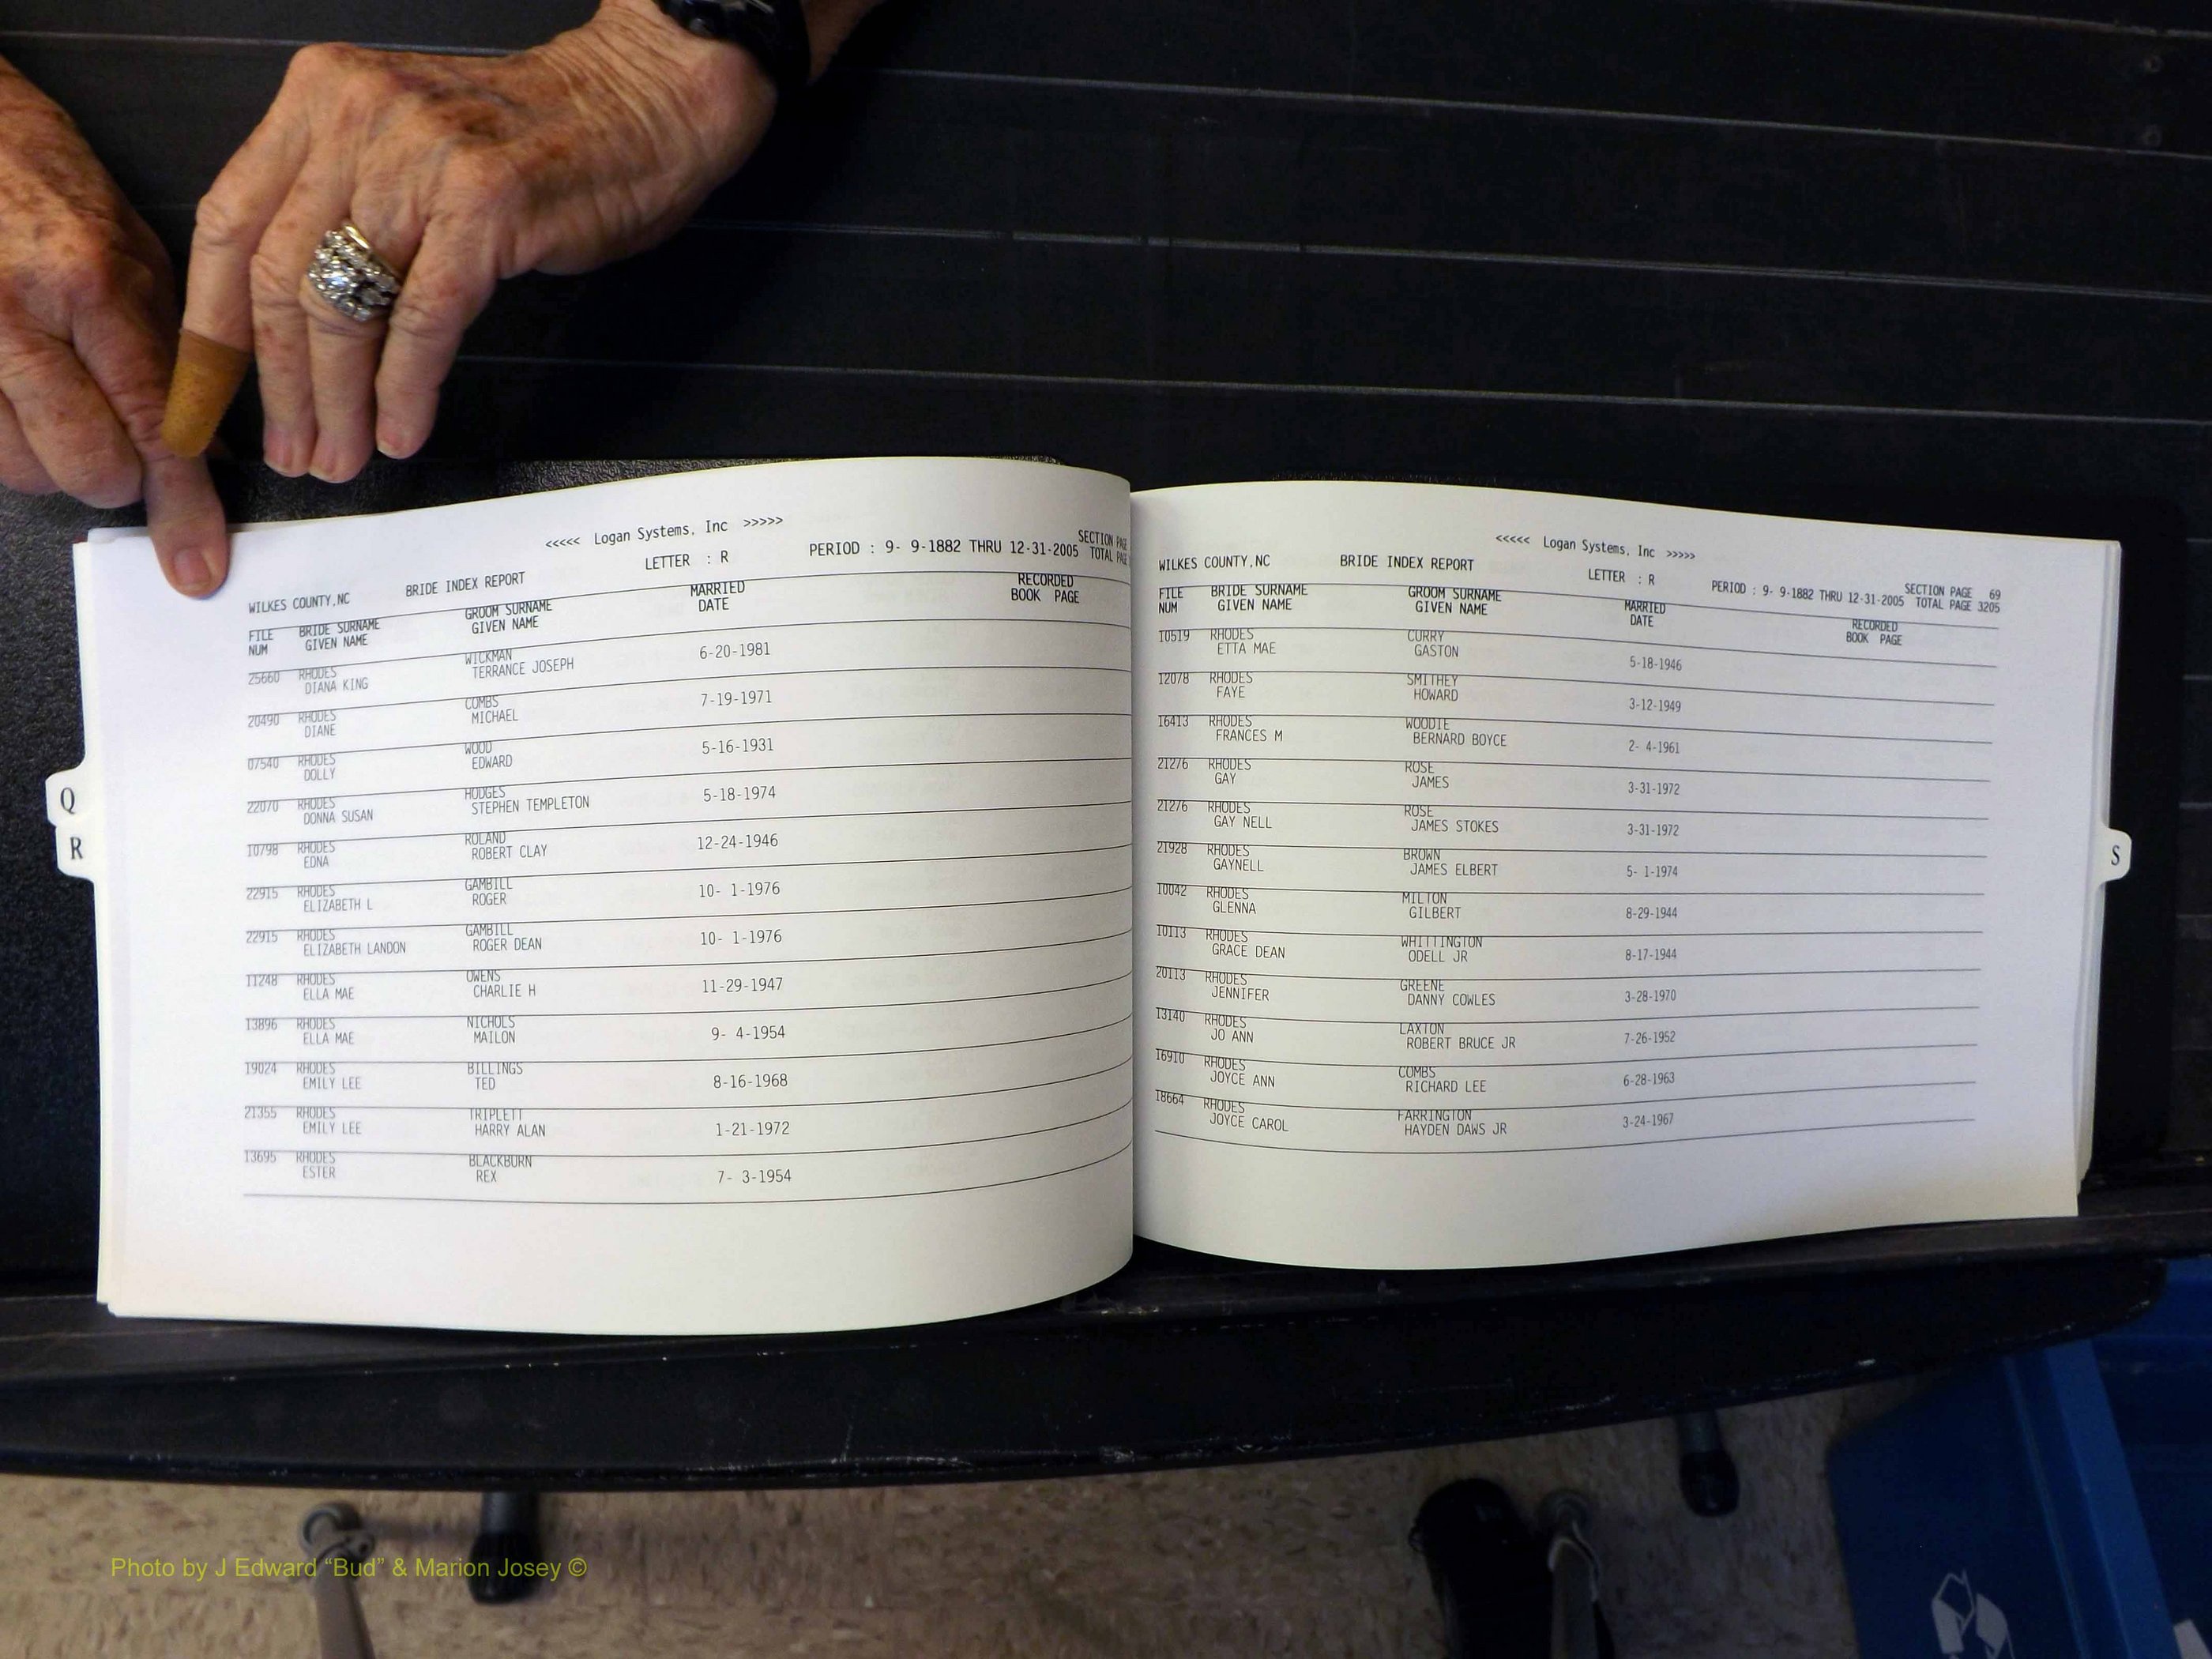 <<<<< Logan Systems, Inc >>>>>
WILKES COUNTY,NC BRIDE INDEX REPORT LETTER : R PERIOD : 9- 9-1882 THRU 12-31-2005 SECTION PAGE
TOTAL
FILE BRIDE SURNAME GROOM SURNAME MARRIED RECORDED
NUM GIVEN NAME GIVEN NAME DATE BOOK PAGE
25660 RHODES WICKMAN
DIANA KING TERRANCE JOSEPH 6-20-1981
20490 RHODES COMBS
DIANE MICHAEL 7-19-1971
07540 RHODES WOOD
DOLLY EDWARD 5-16-1931
22070 RHODES HODGES
DONNA SUSAN STEPHEN TEMPLETON 5-18-1974
10798 RHODES ROLAND
EDNA ROBERT CLAY 12-24-1946
22915 RHODES GAMBILL
ELIZABETH L ROGER 10- 1-1976
22915 RHODES GAMBILL
ELIZABETH LANDON ROGER DEAN 10- 1-1976
11248 RHODES OWENS
ELLA MAE CHARLIE H 11-29-1947
13896 RHODES NICHOLS
ELLA MAE MAILON 9- 4-1954
19024 RHODES BILLINGS
EMILY LEE TED 8-16-1968
21355 RHODES TRIPLETT
EMILY LEE HARRY ALAN 1-21-1972
13695 RHODES BLACKBURN
ESTER REX 7- 3-1954
Q
R
<<<<< Logan Systems, Inc >>>>>
WILKES COUNTY,NC BRIDE INDEX REPORT LETTER : R SECTION PAGE 69
PERIOD : 9- 9-1882 THRU 12-31-2005 TOTAL PAGE 3205
FILE BRIDE SURNAME GROOM SURNAME MARRIED RECORDED
NUM GIVEN NAME GIVEN NAME DATE BOOK PAGE
10519 RHODES CURRY
ETTA MAE GASTON 5-18-1946
12078 RHODES SMITHEY
FAYE HOWARD 3-12-1949
16413 RHODES WOODIE
FRANCES M BERNARD BOYCE 2- 4-1961
21276 RHODES ROSE
GAY JAMES 3-31-1972
21276 RHODES ROSE
GAY NELL JAMES STOKES 3-31-1972
21928 RHODES BROWN
GAYNELL JAMES ELBERT 5- 1-1974
10042 RHODES MILTON
GLENNA GILBERT 8-29-1944
10113 RHODES WHITTINGTON
GRACE DEAN ODELL JR 8-17-1944
20113 RHODES GREENE
JENNIFER DANNY COWLES 3-28-1970
13140 RHODES LAXTON
JO ANN ROBERT BRUCE JR 7-26-1952
16910 RHODES COMBS
JOYCE ANN RICHARD LEE 6-28-1963
18664 RHODES FARRINGTON
JOYCE CAROL HAYDEN DAWS JR 3-24-1967
S
Photo by J Edward “Bud” & Marion Josey ©